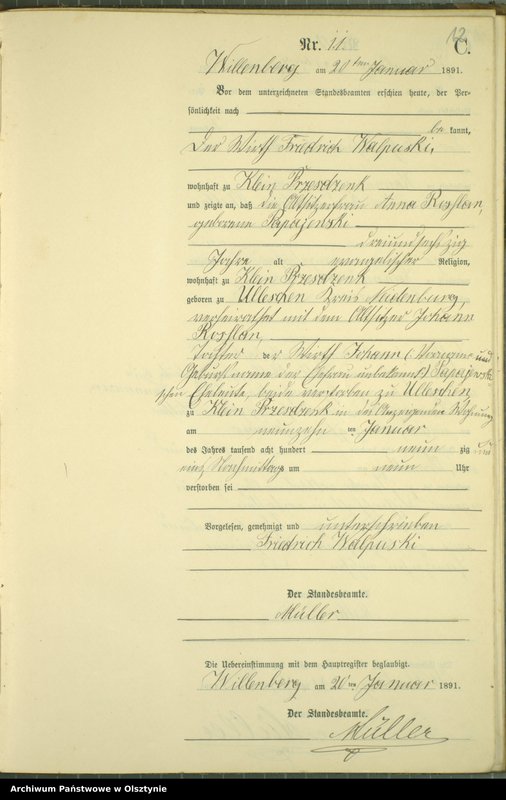 12
Nr. 11
C.
Willenberg am 20 ten Januar 1891.
Vor dem unterzeichneten Standesbeamten erschien heute, der Per-
sönlichkeit nach
be kannt,
Der Wirth Friedrich Walpuski,
wohnhaft zu Klein Przesdzenk
und zeigte an, daß die Altsitzerfrau Anna Rosslan,
geborene
dreiundsechzig
Jahre alt evangelischer Religion,
wohnhaft zu Klein Przesdzenk
geboren zu Ulleschen Kreis Neidenburg,
verheirathet mit dem Altsitzer Johann
Rosslan,
Tochter der Wirth Johann (Vorname und
Geburtsname der Ehefrau unbekannt)
schen Eheleute, beide verstorben zu Ulleschen
zu Klein Przesdzenk in der Anzeigenden Wohnung
am neunzehn ten Januar
des Jahres tausend acht hundert neun zig und
eins, Nachmittags um neun Uhr
verstorben sei
Vorgelesen, genehmigt und unterschrieben
Friedrich Walpuski
Der Standesbeamte.
Müller
Die Uebereinstimmung mit dem Hauptregister beglaubigt.
Willenberg am 20 ten Januar 1891.
Der Standesbeamte.
Müller
Archiwum Państwowe w Olsztynie